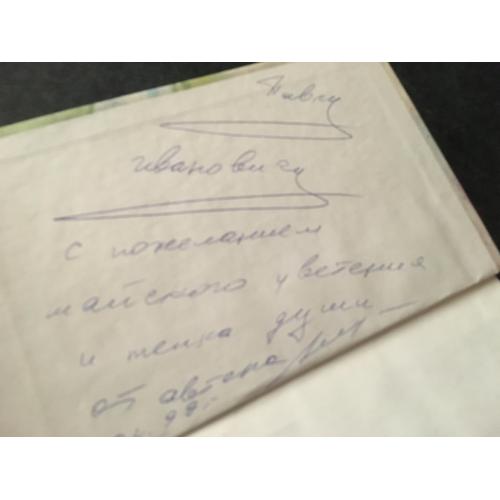 Павлу
Ивановичу
с пожеланием
майского цветения
и тепла души
от автора